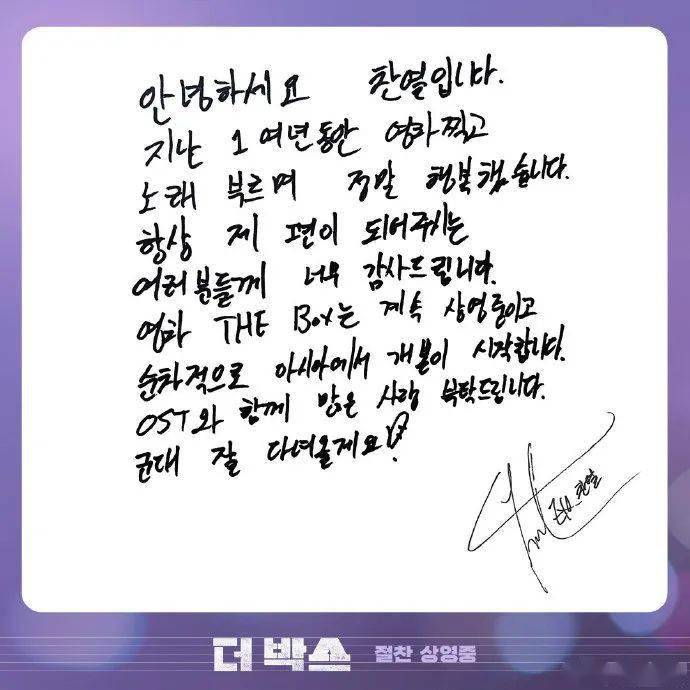 안녕하세요 찬열입니다.
지난 1여년동안 영화찍고
노래 부르며 정말 행복했습니다.
항상 제 편이 되어주시는
여러분들께 너무 감사드립니다.
영화 THE BOX는 계속 상영중이고
순차적으로 아시아에서 개봉이 시작합니다.
OST와 함께 많은 사랑 부탁드립니다.
군대 잘 다녀올게요!
찬열
더 박스 절찬 상영중